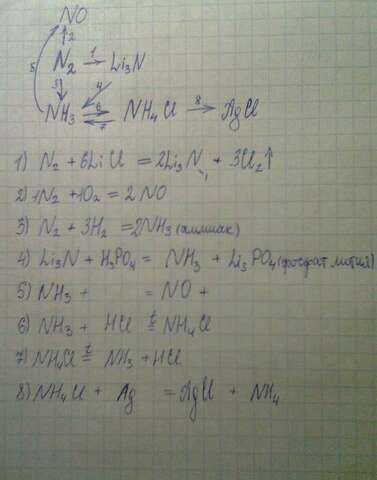 NO
↑2
N2 1→ Li3N
5 3↓ 4
NH3 6⇄7 NH4Cl 8→ AgCl
1) N2 + 6LiCl = 2Li3N + 3Cl2↑
2) 1N2 + 1O2 = 2NO
3) N2 + 3H2 = 2NH3 (аммиак)
4) Li3N + H3PO4 = NH3 + Li3PO4 (фосфат лития)
5) NH3 + = NO +
6) NH3 + HCl t= NH4Cl
7) NH4Cl t= NH3 + HCl
8) NH4Cl + Ag = AgCl + NH4